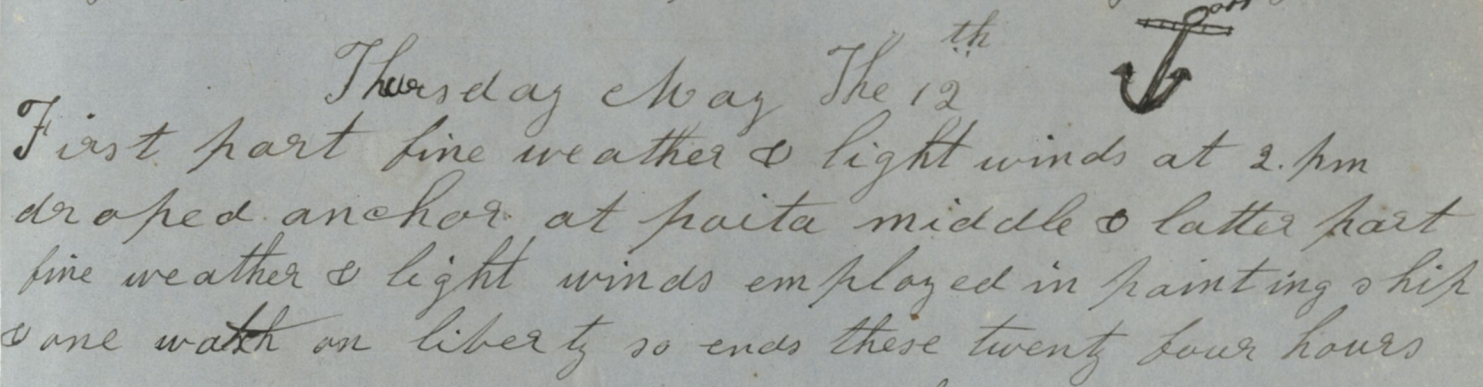 Thursday May The 12th
First part fine weather & light winds at 2. pm
droped anchor at paita middle & latter part
fine weather & light winds employed in painting ship
& one watch on liberty so ends these twenty four hours